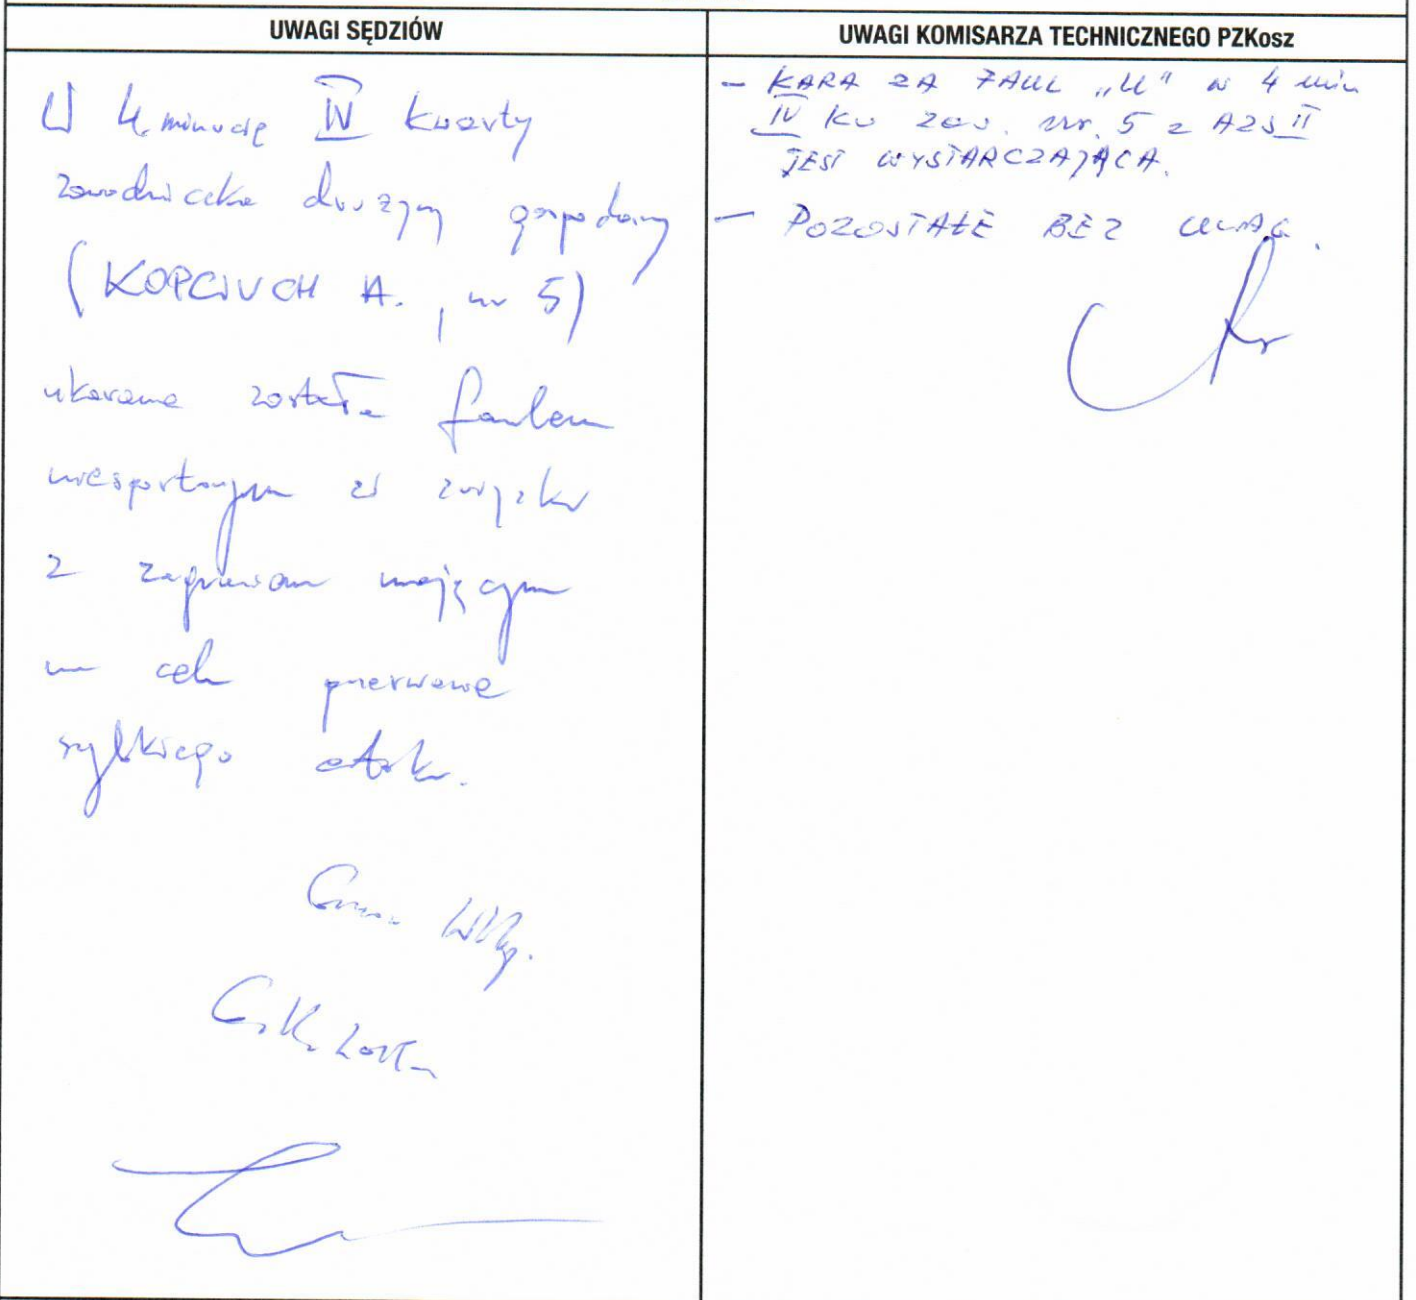 UWAGI SĘDZIÓW
W 4 minucie IV kwarty
zawodniczka drużyny gospodarzy
(KOPCIUCH A., nr 5)
ukarana została faulem
niesportowym w związku
z zagraniem mającym
na celu przerwanie
szybkiego ataku.
UWAGI KOMISARZA TECHNICZNEGO PZKosz
- KARA ZA FAUL „U" w 4 min
IV kw zaw. nr. 5 z AZS II
JEST WYSTARCZAJĄCA.
- POZOSTAŁE BEZ UWAG.